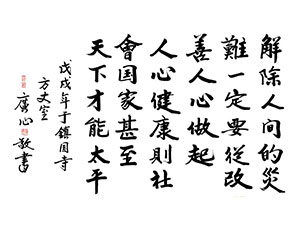 解除人间的災
難一定要從改
善人心做起
人心健康則社
會国家甚至
天下才能太平
戊戌年于鎮国寺
方丈室
廣心敬書